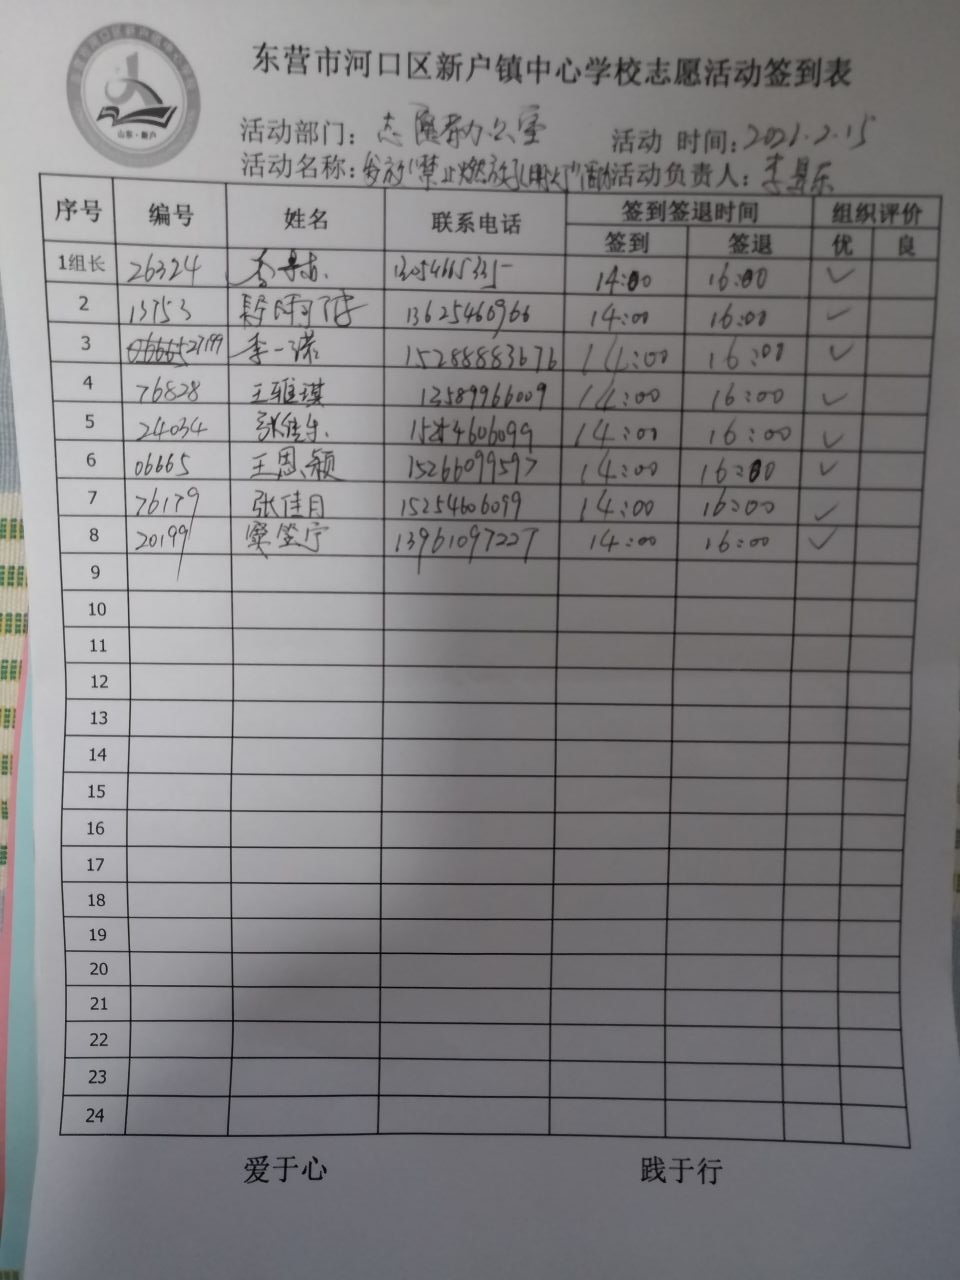 东营市河口区新户镇中心学校志愿活动签到表
山东·新户
活动部门：志愿者办公室 活动 时间：2021.2.15
活动名称：发放"禁止燃放 活动负责人：李
序号 编号 姓名 联系电话 签到签退时间 组织评价
签到 签退 优 良
1组长 26324 李 14:00 16:00 ✓
2 13753 13625466966 14:00 16:00 ✓
3 李一诺 15288883676 14:00 16:00 ✓
4 76828 王雅琪 13589966009 14:00 16:00 ✓
5 24034 张佳乐 14:00 16:00 ✓
6 06665 王恩颖 15266099597 14:00 16:00 ✓
7 76179 张佳月 15254606099 14:00 16:00 ✓
8 20199 窦笠宁 13961097227 14:00 16:00 ✓
9
10
11
12
13
14
15
16
17
18
19
20
21
22
23
24
爱于心 践于行